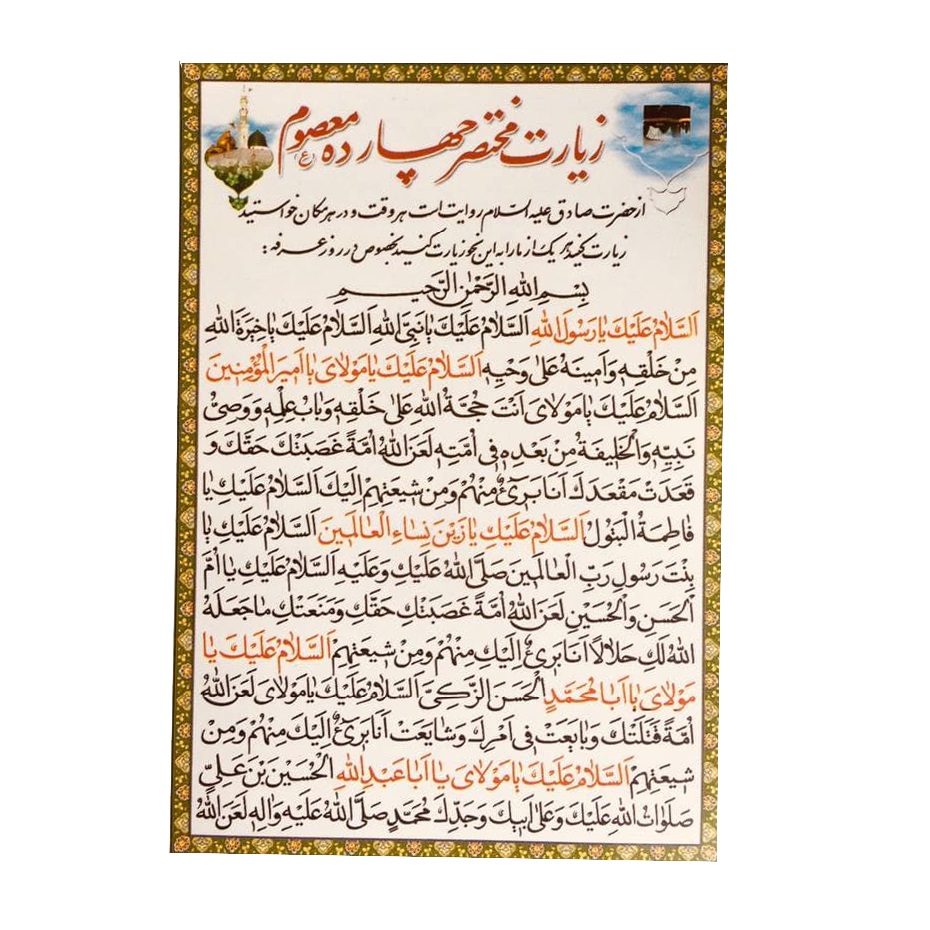 زیارت مختصر چهارده معصوم (ع)
از حضرت صادق علیه السلام روایت است هر وقت و در هر مکان خواستید
زیارت کنید هر یک از ما را به این نحو زیارت کنید بخصوص در روز عرفه :
بِسْمِ اللهِ الرَّحْمٰنِ الرَّحیـمِ
اَلسَّلامُ عَلَیْكَ یا رَسُولَ اللهِ اَلسَّلامُ عَلَیْكَ یا نَبِیَّ اللهِ اَلسَّلامُ عَلَیْكَ یا خِیَرَةَ اللهِ
مِنْ خَلْقِهِ وَاَمینَهُ عَلیٰ وَحْیِهِ اَلسَّلامُ عَلَیْكَ یا مَوْلایَ یا اَمیرَ الْمُؤْمِنینَ
اَلسَّلامُ عَلَیْكَ یا مَوْلایَ اَنْتَ حُجَّةُ اللهِ عَلیٰ خَلْقِهِ وَبابُ عِلْمِهِ وَوَصِیُّ
نَبِیِّهِ وَالْخَلیفَةُ مِنْ بَعْدِهِ فی اُمَّتِهِ لَعَنَ اللهُ اُمَّةً غَصَبَتْكَ حَقَّكَ وَ
قَعَدَتْ مَقْعَدَكَ اَنَا بَریٌٔ مِنْهُمْ وَمِنْ شیعَتِهِمْ اِلَیْكَ اَلسَّلامُ عَلَیْكِ یا
فاطِمَةُ الْبَتُولُ اَلسَّلامُ عَلَیْكِ یا زَیْنَ نِساءِ الْعالَمینَ اَلسَّلامُ عَلَیْكِ یا
بِنْتَ رَسُولِ رَبِّ الْعالَمینَ صَلَّی اللهُ عَلَیْكِ وَعَلَیْهِ اَلسَّلامُ عَلَیْكِ یا اُمَّ
الْحَسَنِ وَالْحُسَیْنِ لَعَنَ اللهُ اُمَّةً غَصَبَتْكِ حَقَّكِ وَمَنَعَتْكِ ما جَعَلَهُ
اللهُ لَكِ حَلالاً اَنَا بَریٌٔ اِلَیْكِ مِنْهُمْ وَمِنْ شیعَتِهِمْ اَلسَّلامُ عَلَیْكَ یا
مَوْلایَ یا اَبا مُحَمَّدٍ الْحَسَنَ الزَّكِیَّ اَلسَّلامُ عَلَیْكَ یا مَوْلایَ لَعَنَ اللهُ
اُمَّةً قَتَلَتْكَ وَبایَعَتْ فی اَمْرِكَ وَشایَعَتْ اَنَا بَریٌٔ اِلَیْكَ مِنْهُمْ وَمِنْ
شیعَتِهِمْ اَلسَّلامُ عَلَیْكَ یا مَوْلایَ یا اَبا عَبْدِ اللهِ الْحُسَیْنَ بْنَ عَلِیٍّ
صَلَواتُ اللهِ عَلَیْكَ وَعَلیٰ اَبیكَ وَجَدِّكَ مُحَمَّدٍ صَلَّی اللهُ عَلَیْهِ وَالِهِ لَعَنَ اللهُ